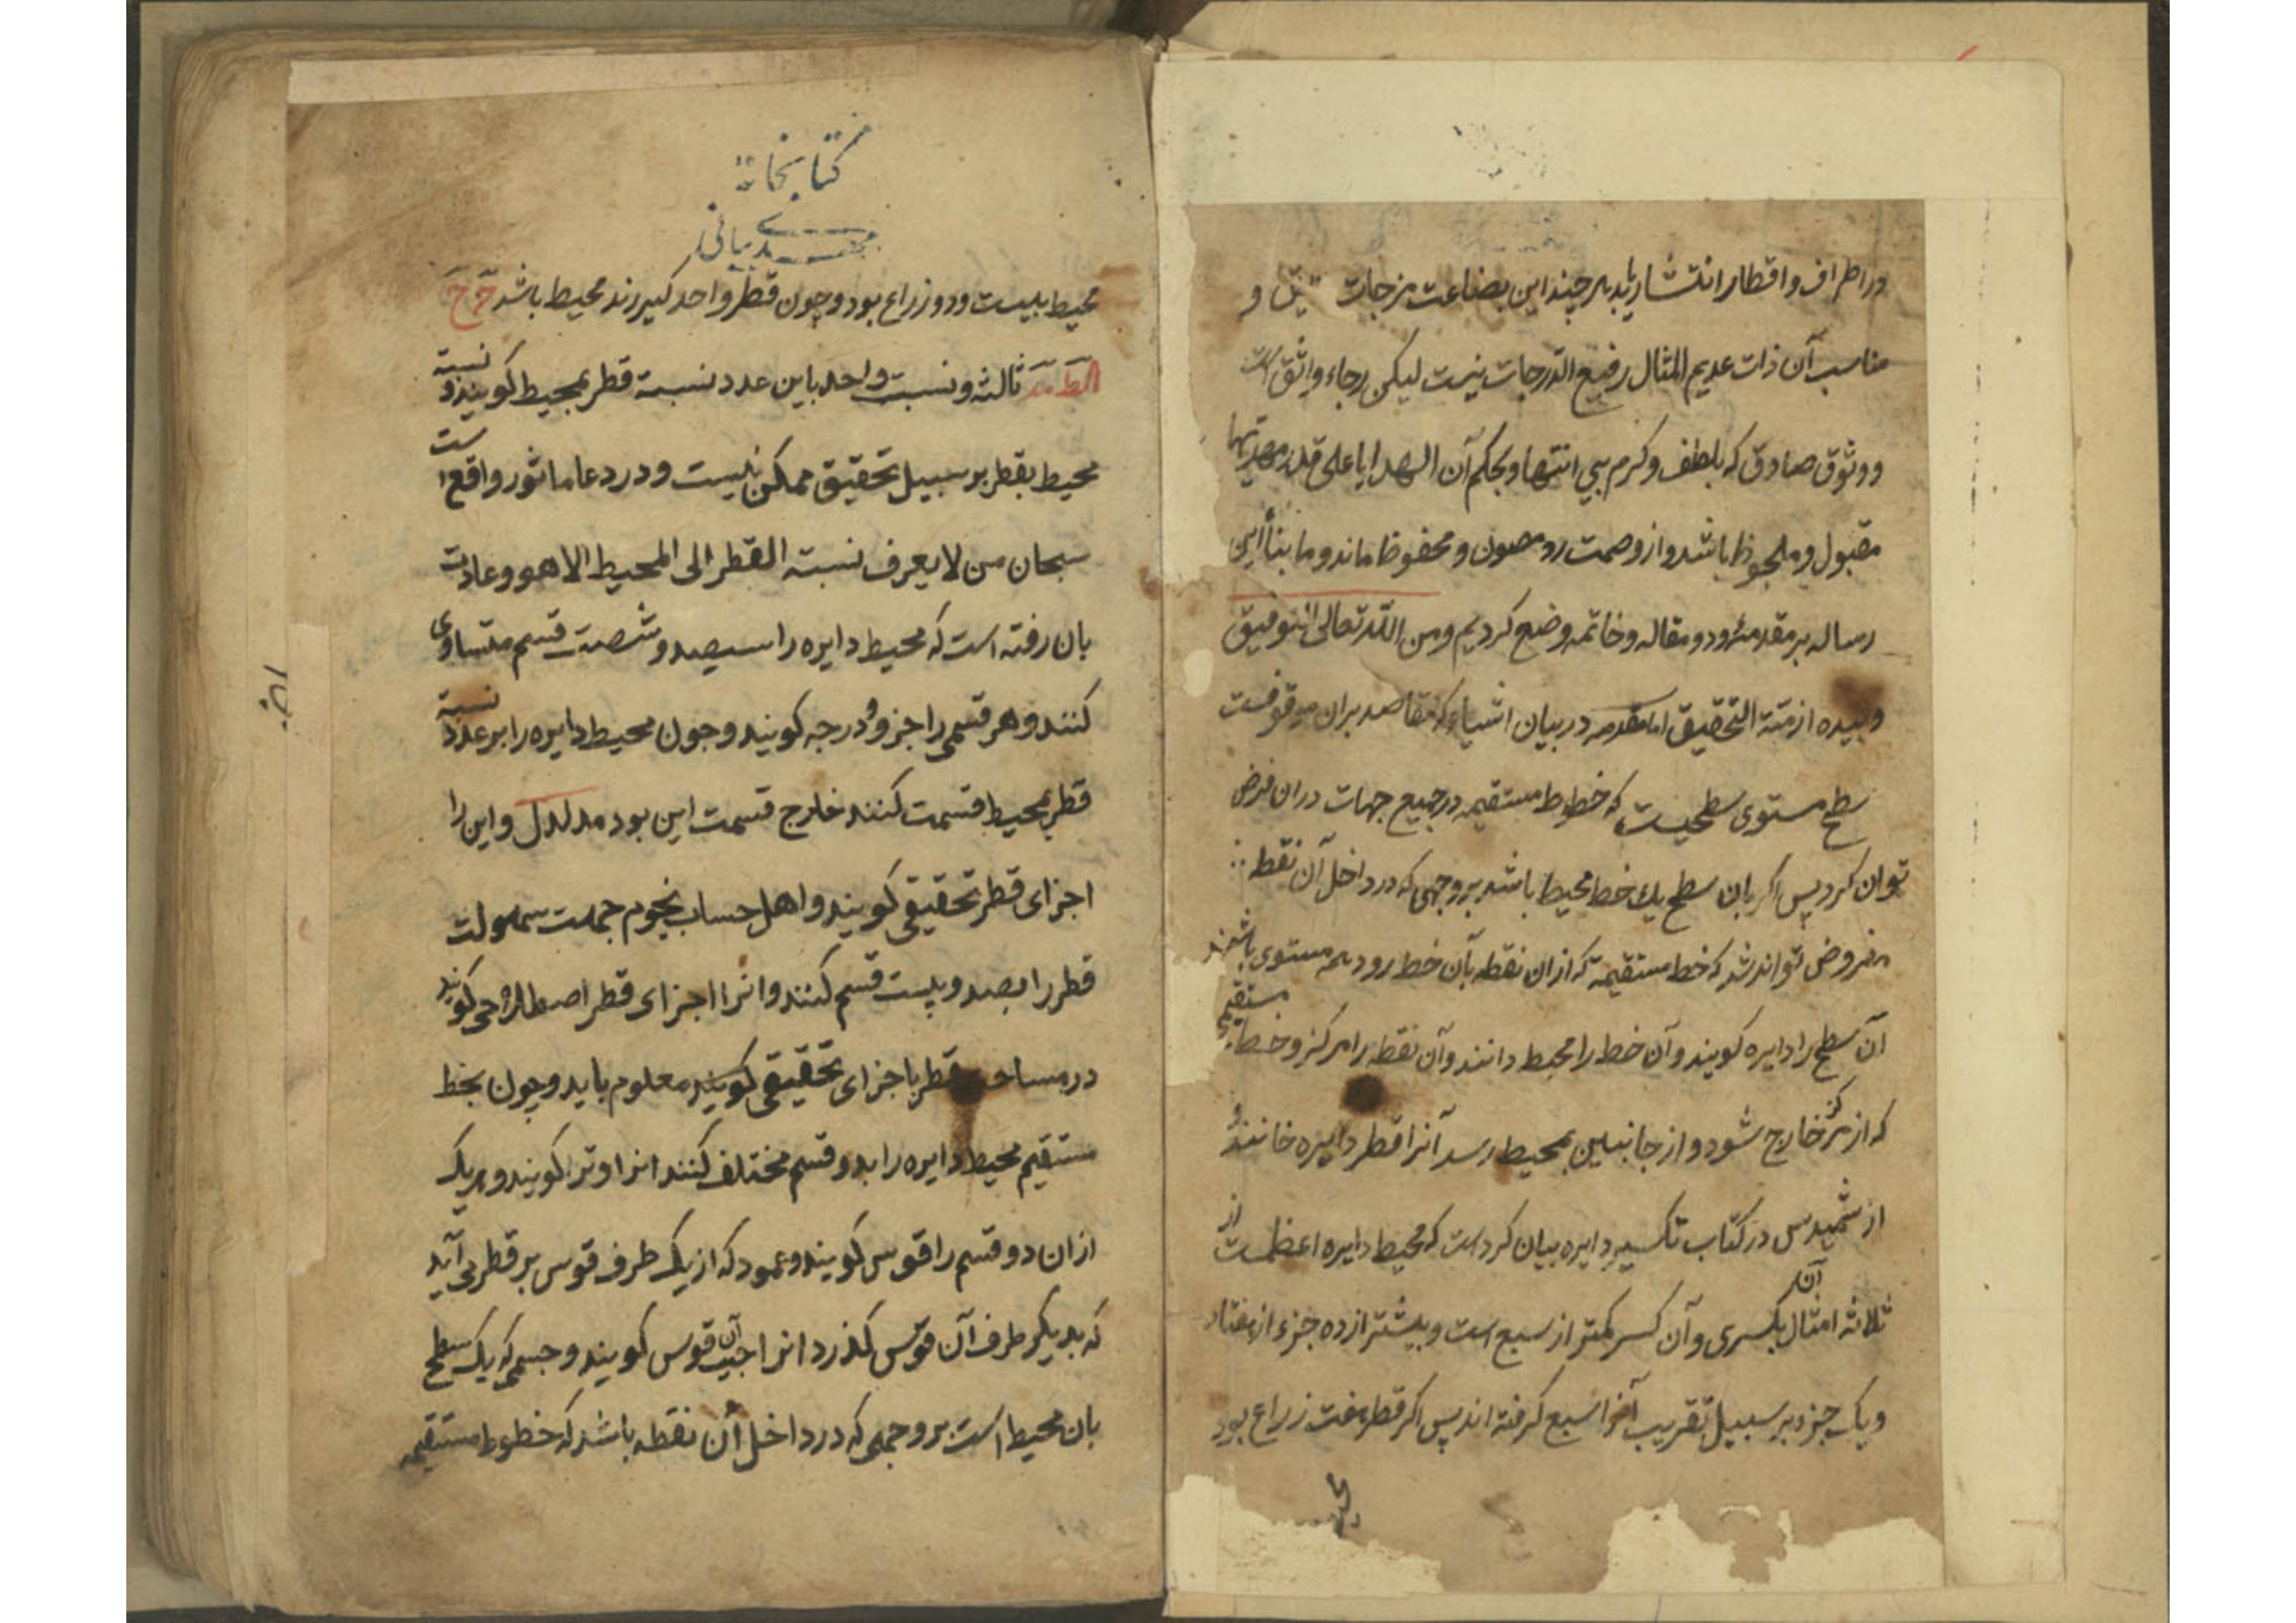 در اطراف و اقطار انتشار یابد هر چند این بضاعت مزجات و
مناسب آن ذات عدیم المثال رفیع الدرجات نیست لیکن رجاء واثق است
و وثوق صادق که بلطف و کرم بی انتها و بحکم آن الهدایا علی قدر مهدیها
مقبول و ملحوظ باشد و از وصمت رد مصون و محفوظ ماند و ما بناأ این
رساله بر مقدمه و دو مقاله و خاتمه وضع کردیم و من الله تعالی التوفیق
و بیده ازمّة التحقیق اما مقدمه در بیان اشیاء که مقاصد بران موقوفست
سطح مستوی سطحیست که خطوط مستقیمه در جمیع جهات دران فرض
توان کرد پس اکر بان سطح یک خط محیط باشد بر وجهی که در داخل آن نقطه
مفروض تواند شد که خط مستقیمة که ازان نقطه بآن خط رود همه مستوی باشند
آن سطح را دایره کویند و آن خط را محیط دانند و آن نقطه را مرکز و خط مستقیمی
که از مرکز خارج شود و از جانبین بمحیط رسد آنرا قطر دایره خانند و
ارشمیدس در کتاب تکسیر دایره بیان کردست که محیط دایره اعظمست از
ثلاثه امثال آن بکسری و آن کسر کمتر از سبع است و بیشتر از ده جزء از هفتاد
و یک جزء بر سبیل تقریب آنرا سبع کرفته اند پس اکر قطر هفت زراع بود
محیط
کتابخانه
مهدی بیانی
محیط بیست و دو زراع بود و چون قطر واحد کیرند محیط باشد
ثالثه و نسبت واحد باین عدد نسبة قطر بمحیط کویند و نسبة
محیط بقطر بر سبیل تحقیق ممکن نیست و در دعا ماثور واقع است
سبحان من لا یعرف نسبته القطر الی المحیط الا هو و عادت
بان رفته است که محیط دایره را سیصد و شصت قسم متساوی
کنند و هر قسمی را جزو و درجه کویند و جون محیط دایره را بر عدد نسبة
قطر بمحیط قسمت کنند خارج قسمت این بود و این را
اجزای قطر تحقیقی کویند و اهل حساب نجوم جهت سهولت
قطر را بصد و بیست قسم کنند و انرا اجزای قطر اصطلاحی کویند
در مساحت قطر باجزای تحقیقی کویند معلوم باید و چون بخط
مستقیم محیط دایره را بدو قسم مختلف کنند انرا وتر کویند و هر یک
ازان دو قسم را قوس کویند و عمود که از یک طرف قوس بر قطری آید
که بدیکر طرف آن قوس کذرد انرا جیب آن قوس کویند و جسمی که یک سطح
بان محیط است بر وجهی که در داخل آن نقطه باشد که خطوط مستقیمه